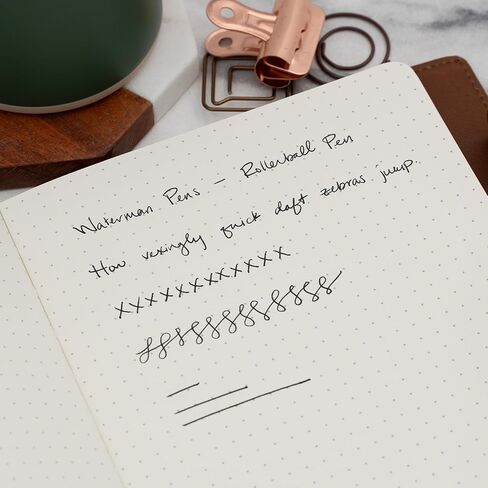 Waterman Pens - Rollerball Pen
How vexingly quick daft zebras jump.
xxxxxxxxxxxx